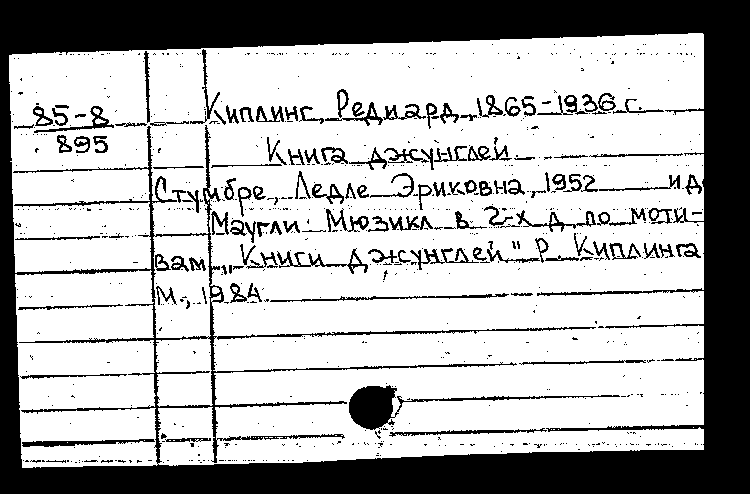 85-8
895
Киплинг, Редиард, 1865-1936 г.
Книга джунглей
Стумбре, Ледле Эриковна, 1952 и д
Маугли: Мюзикл в 2-х д. по моти-
вам „Книги джунглей" Р. Киплинга
М., 1984.